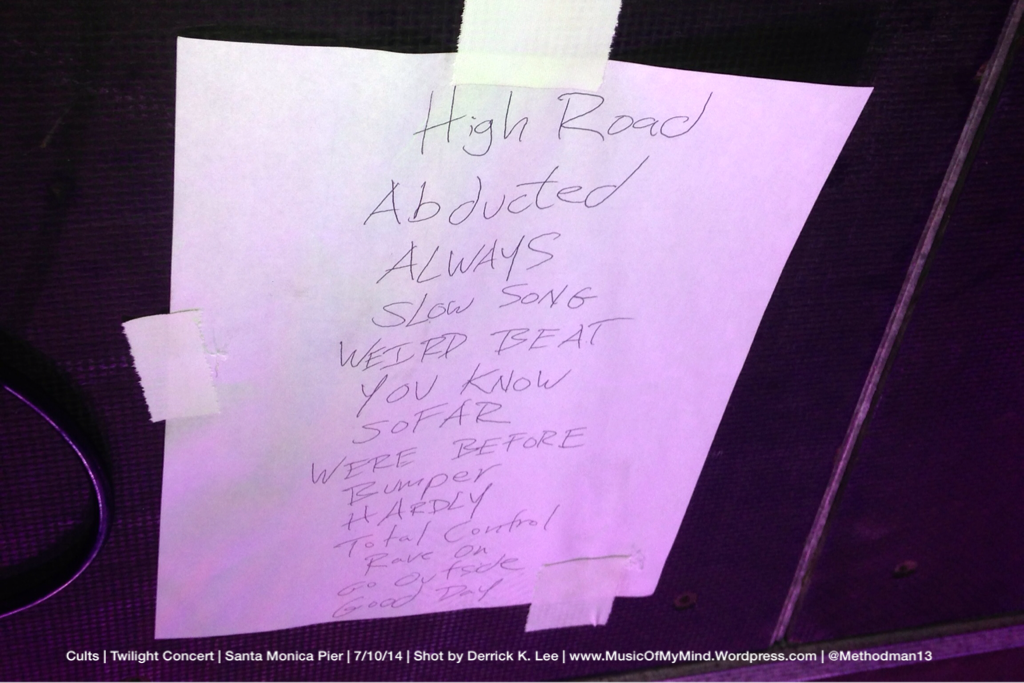 High Road
Abducted
ALWAYS
SLOW SONG
WEIRD BEAT
YOU KNOW
SOFAR
WERE BEFORE
Bumper
HARDLY
Total Control
Rave On
Go Outside
Good Day
Cults | Twilight Concert | Santa Monica Pier | 7/10/14 | Shot by Derrick K. Lee | www.MusicOfMyMind.Wordpress.com | @Methodman13